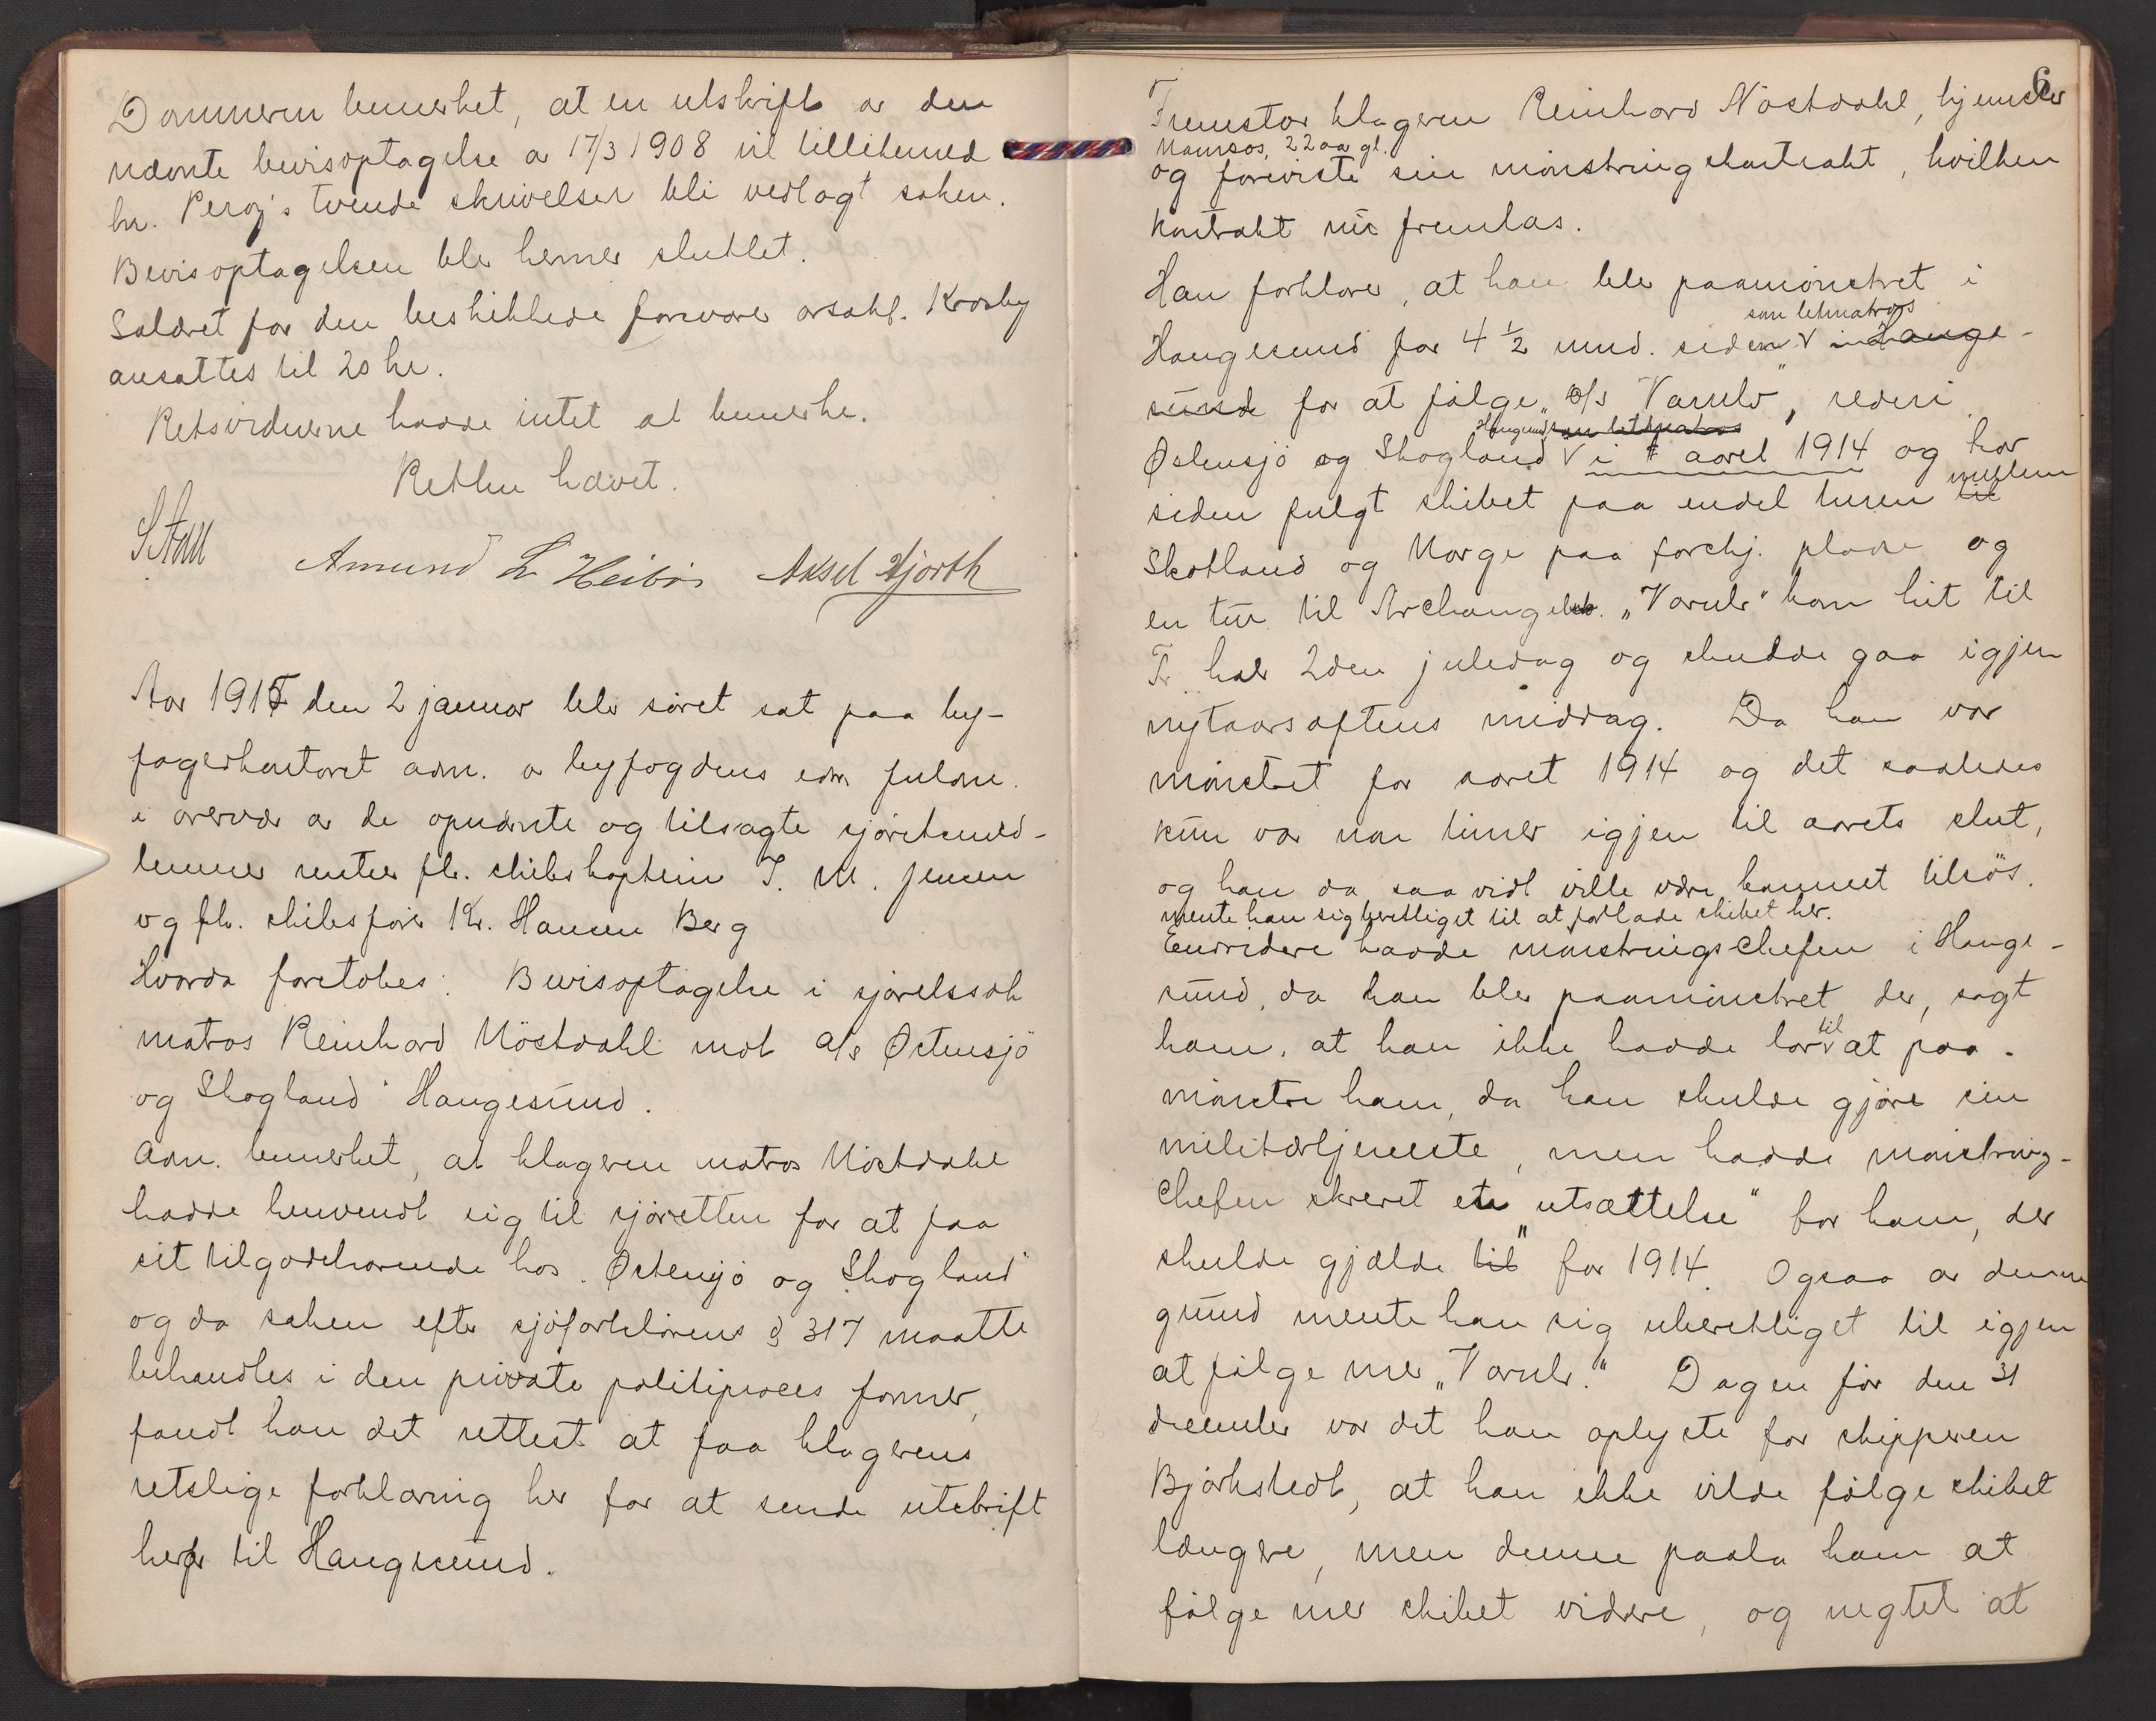 Dommeren bemerket, at en utskrift av den
nævnte bevisoptagelse av 17/3 1908 vil tillikemed
hr. tvende skrivelser bli vedlagt saken.
Bevisoptagelsen blev hermed sluttet.
Salæret for den beskikkede forsvarer orsakf. Krosby
ansattes til 20 kr.
Retsvidnerne hadde intet at bemerke.
Retten hævet.
Amund L Aksel Hjorth
Aar 1915 den 2 januar blev sjøret sat paa by-
fogedkontoret adm. av byfogdens edsv fuldm.
i overvær av de opnævnte og tilsagte sjøretsmed-
lemmer rentier fh. skibskaptein J. M. Jensen
og fh. skibsfører Kr. Hansen Berg
Hvorda foretokes: Bevisoptagelse i sjøretssak
matros Reinhard Nöstdahl mot a/s Østensjö
og Skogland Haugesund.
Adm. bemerket, at klageren matros Nöstdahl
hadde henvendt sig til sjøretten for at faa
sit tilgodehavende hos Østensjö og Skogland
og da saken efter sjöfartslovens § 317 maatte
behandles i den private politiproces former,
fandt han det rettest at faa klagerens
retslige forklaring her for at sende utskrift
herav til Haugesund.
6
Fremstod klageren Reinhard Nöstdahl, hjemsted
Namsos, 22 aar gl.
og foreviste sin mönstringskontrakt, hvilken
kontrakt nu fremlas.
Han forklarer, at han blev paamönstret i
som letmatros
Haugesund for 4 ½ mnd. siden i Hauge-
sund for at fölge D/S "Varulv", rederi
Haugesund som letmatros
Østensjö og Skogland i aaret 1914 og har
mellem
siden fulgt skibet paa endel turer til
Skotland og Norge paa forskj. plade og
en tur til Archangelsk. "Varulv" kom hit til
Tr.hm 2den juledag og skulde gaa igjen
nytaarsaftens middag. Da han var
mönstret for aaret 1914 og det saaledes
kun var noen timer igjen til aarets slut,
og han da saavidt ville være kommet tilsös,
mente han sig berettiget til at forlade skibet her.
Endvidere hadde mönstringschefen i Hauge-
sund, da han blev paamönstret der, sagt
ham, at han ikke hadde lov til at paa-
mönstre ham, da han skulde gjöre sin
militærtjeneste, men hadde mönstrings-
chefen skrevet en "utsættelse" for ham, der
skulde gjælde til for 1914. Ogsaa av denne
grund mente han sig uberettiget til igjen
at fölge med "Varulv." Dagen för den 31
december var det han oplyste for skipperen
Björkstedt, at han ikke vilde fölge skibet
længere, men denne paala ham at
fölge med skibet videre, og negtet at